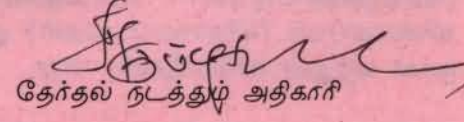 தேர்தல் நடத்தும் அதிகாரி